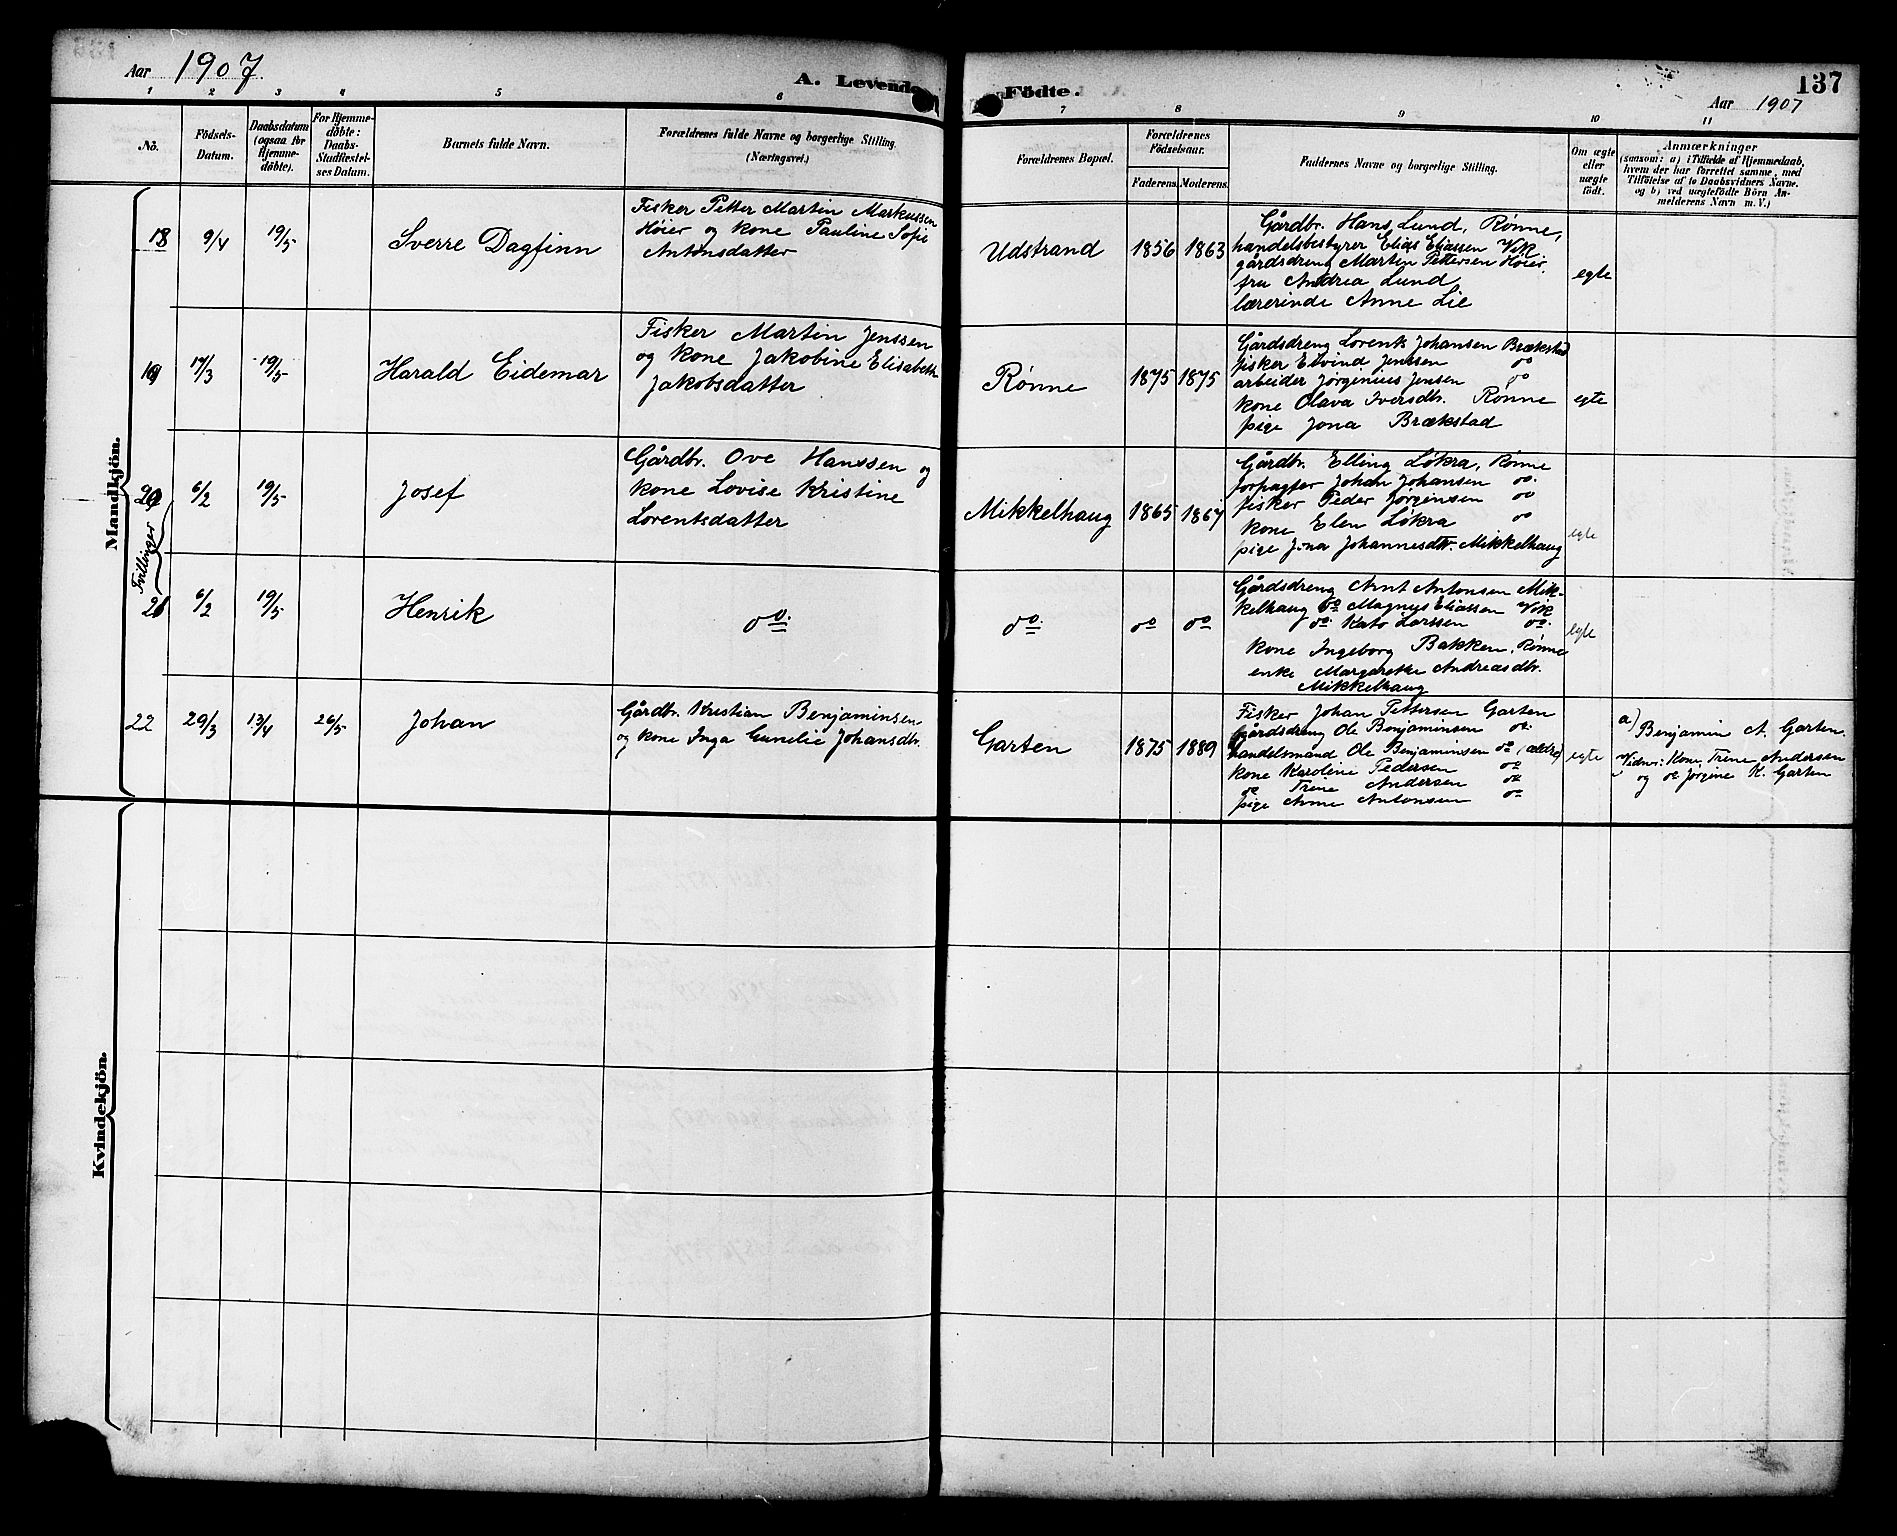 Aar 1907
A. Levende
Födte.
137
Aar 1907
1 2 3 4 5 6 7 8 9 10 11
Nö.
Födsels-
Datum.
Daabsdatum
(ogsaa for
Hjemme-
döbte).
For Hjemme-
döbte:
Daabs-
Stadfæstel-
ses Datum.
Barnets fulde Navn.
Forældrenes fulde Navne og borgerlige Stilling.
(Næringsvei.)
Forældrenes Bopæl.
Forældrenes
Födselsaar.
Faderens. Moderens.
Faddernes Navne og borgerlige Stilling.
Om ægte
eller
uægte
födt.
Anmærkninger
(saasom: a) i Tilfælde af Hjemmedaab,
hvem der har forrettet samme, med
Tilföielse af to Daabsvidners Navne,
og b) ved uægtefödte Börn An-
melderens Navn m. V.)
Mandkjön.
18 9/4 19/5 Sverre Dagfinn
Fisker Petter Martin Markussen
Höier og kone Pauline Sofie
Antonsdatter
Udstrand 1856 1863
Gårdbr. Hans Lund, Rønne,
handelsbestyrer Elias Eliassen Vik
gårdsdreng Martin Pettersen Höier,
fru Andrea Lund
lærerinde Anne Lie
egte
19 17/3 19/5 Harald Eidemar
Fisker Martin Jenssen
og kone Jakobine Elisabeth
Jakobsdatter
Rønne 1875 1875
Gårdsdreng Lorents Johansen Brækstad
fisker Edvind Jenssen do
arbeider Jørgenius Jensen do
kone Olava Iversdtr. Rønne
pige Jona Brækstad
egte
Tvillinger
20 6/2 19/5 Josef
Gårdbr. Ove Hanssen og
kone Lovise Kristine
Lorentsdatter
Mikkelhaug 1865 1867
Gårdbr. Elling Løkra, Rønne
forpagter Johan Johansen do.
fisker Peder Jørgensen do
kone Elen Løkra do
pige Jona Johannesdtr. Mikkelhaug
egte
21 6/2 19/5 Henrik
do.
do. do do
Gårdsdreng Arnt Antonsen Mik-
kelhaug do Magnus Eliassen Vik
do. Kato Larssen do.
kone Ingeborg Bakken, Rønne
enke Margarethe Andreasdtr.
Mikkelhaug
egte
22 29/3 13/4 26/5 Johan
Gårdbr. Kristian Benjaminsen
og kone Inga Gunelie Johansdtr.
Garten 1875 1889
Fisker Johan Pettersen Garten
Gårdsdreng Ole Benjaminsen do.
handelsmand Ole Benjaminsen do (ældre)
kone Karoline Pedersen do
do Trine Andersen do
pige Anne Antonsen do
egte
a) Benjamin A. Garten.
Vidner: Kone Trine Andersen
og do Jørgine K. Garten
Kvindekjön.